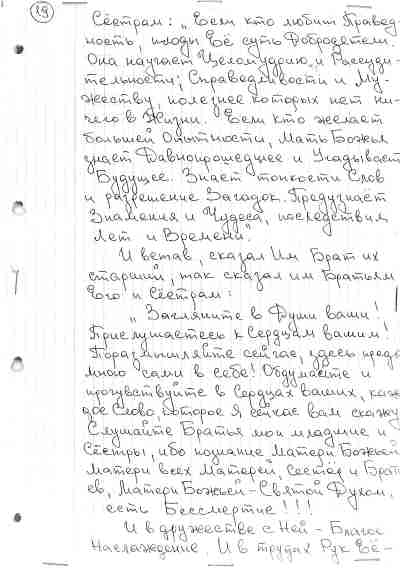 19
Сёстрам: „Если кто любит Правед-
ность, плоды Её суть Добродетели.
Она научает Целомудрию и Рассуди-
тельности, Справедливости и Му-
жеству, полезнее которых нет ни-
чего в Жизни. Если кто желает
большей Опытности, Мать Божья
знает Давнопрошедшее и Угадывает
Будущее. Знает тонкости Слов
и разрешение Загадок. Предузнаёт
Знамения и Чудеса, последствия
Лет и Времени".
И встав, сказал Им Брат их
старший, так сказал им Братьям
Его и Сёстрам:
„Загляните в Души ваши!
Прислушаетесь к Сердцам вашим!
Поразмышляйте сейчас, здесь предо
мною сами в себе! Обдумайте и
прочувствуйте в Сердцах ваших, каж-
дое Слово, которое Я сейчас вам скажу.
Слушайте Братья мои младшие и
Сёстры, ибо познание Матери Божьей
Матери всех Матерей, Сестёр и Брать-
ев, Матери Божьей – Святой Духом,
есть Бессмертие!!!
И в дружестве с Ней – Благое
Наслаждение. И в трудах Рук Её –